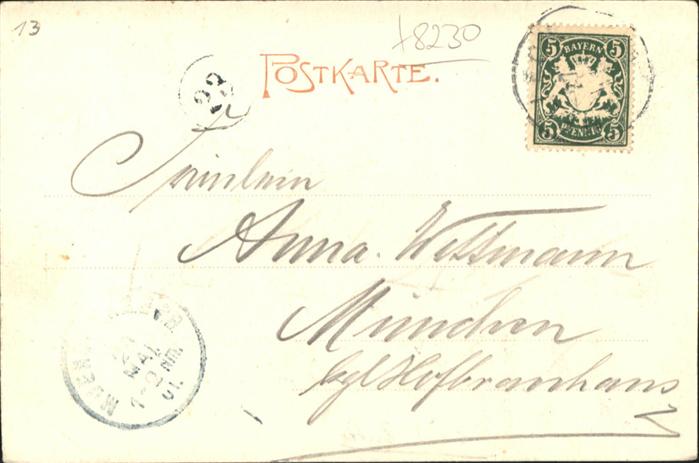 13
+8230
POSTKARTE.
22
5 BAYERN 5
5 PFENNIG 5
Fräulein
Anna. Wittmann
München
kgl Hofbräuhaus
MAI
1-2 Nm.
01.